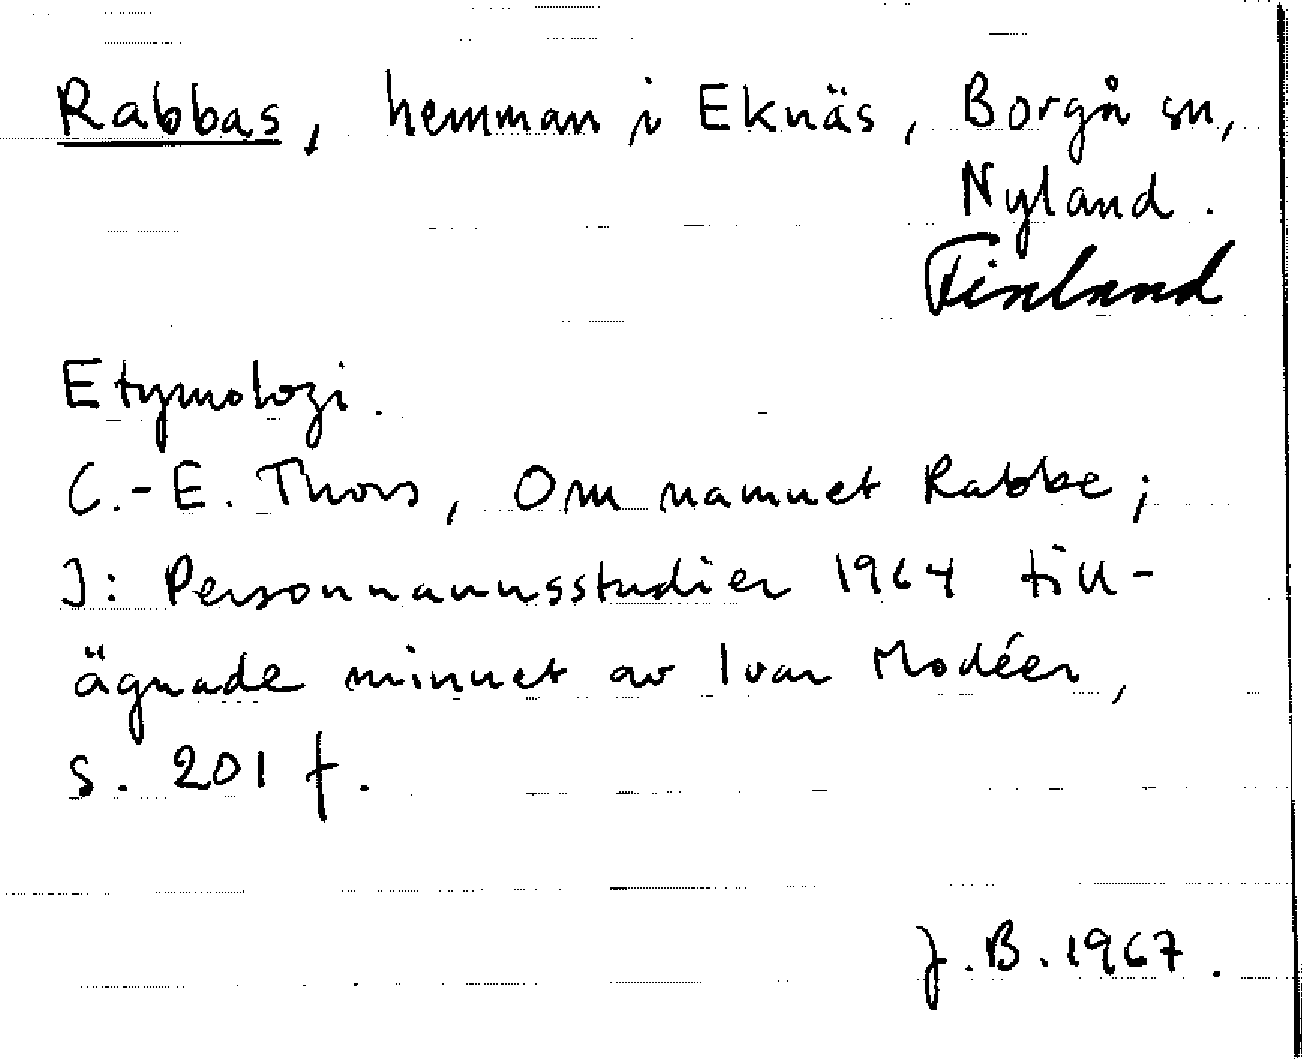 Rabbas, hemman i Eknäs, Borgå sn,
Nyland.
Finland
Etymologi.
C.-E. Thors, Om namnet Rabbe;
I: Personnamnsstudier 1964 till-
ägnade minnet av Ivar Modéer,
s. 201 f.
J.B. 1967.